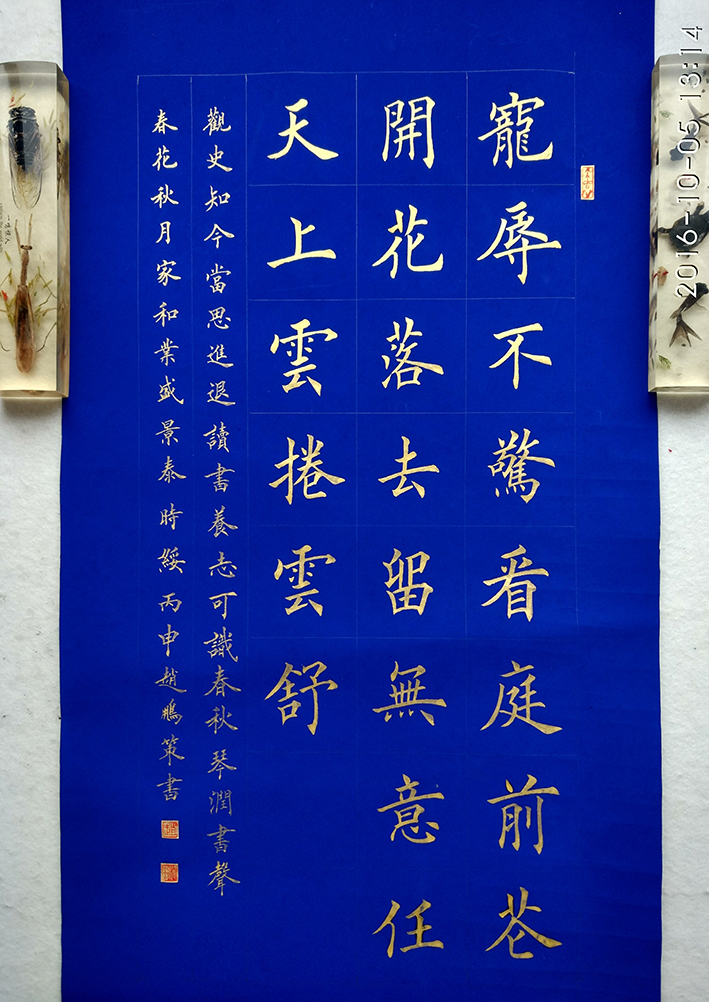 寵辱不驚看庭前花
開花落去留無意任
天上雲捲雲舒
觀史知今當思進退讀書養志可識春秋琴潤書聲
春花秋月家和業盛景泰時綏丙申趙鵬策書
2016-10-05 13:14